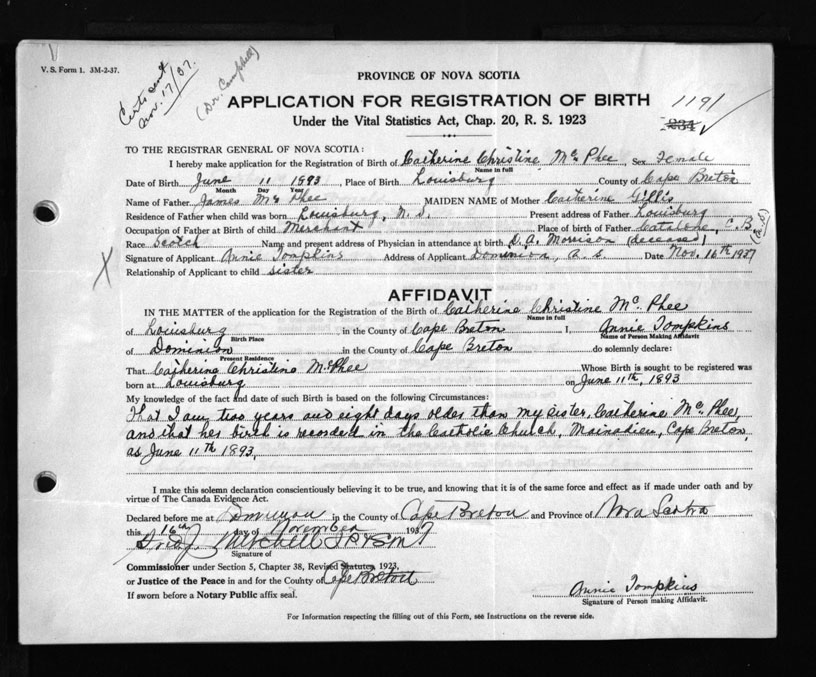 V. S. Form 1. 3M-2-37.
Certs sent
Nov. 17/37.
(Dr. Campbell)
PROVINCE OF NOVA SCOTIA
APPLICATION FOR REGISTRATION OF BIRTH
1191
234
Under the Vital Statistics Act, Chap. 20, R. S. 1923
TO THE REGISTRAR GENERAL OF NOVA SCOTIA:
I hereby make application for the Registration of Birth of Catherine Christine McPhee, Sex Female
Name in full
Date of Birth June 11 1893, Place of Birth Louisburg County of Cape Breton
Month Day Year
Name of Father James McPhee MAIDEN NAME of Mother Catherine Gillis
Residence of Father when child was born Louisburg, N. S. Present address of Father Louisburg
Occupation of Father at Birth of child Merchant Place of birth of Father Catalone, C. B. (N.S)
Race Scotch Name and present address of Physician in attendance at birth D. A. Morrison (deceased)
Signature of Applicant Annie Tompkins Address of Applicant Dominion, N. S. Date Nov. 16th 1937
Relationship of Applicant to child sister
X
AFFIDAVIT
IN THE MATTER of the application for the Registration of the Birth of Catherine Christine McPhee
Name in full
of Louisburg, in the County of Cape Breton I, Annie Tompkins
Birth Place Name of Person Making Affidavit
of Dominion in the County of Cape Breton do solemnly declare:
Present Residence
That Catherine Christine McPhee Whose Birth is sought to be registered was
born at Louisburg on June 11th, 1893
My knowledge of the fact and date of such Birth is based on the following Circumstances:
That I am two years and eight days older than my sister, Catherine McPhee,
and that her birth is recorded in the Catholic Church, Mainadieu, Cape Breton,
as June 11th 1893.
I make this solemn declaration conscientiously believing it to be true, and knowing that it is of the same force and effect as if made under oath and by
virtue of The Canada Evidence Act.
Declared before me at Dominion in the County of Cape Breton and Province of Nova Scotia
this 16th day of November 1937
Mitchell
Signature of
Commissioner under Section 5, Chapter 38, Revised Statutes, 1923,
or Justice of the Peace in and for the County of Cape Breton
If sworn before a Notary Public affix seal.
Annie Tompkins
Signature of Person making Affidavit.
For Information respecting the filling out of this Form, see Instructions on the reverse side.